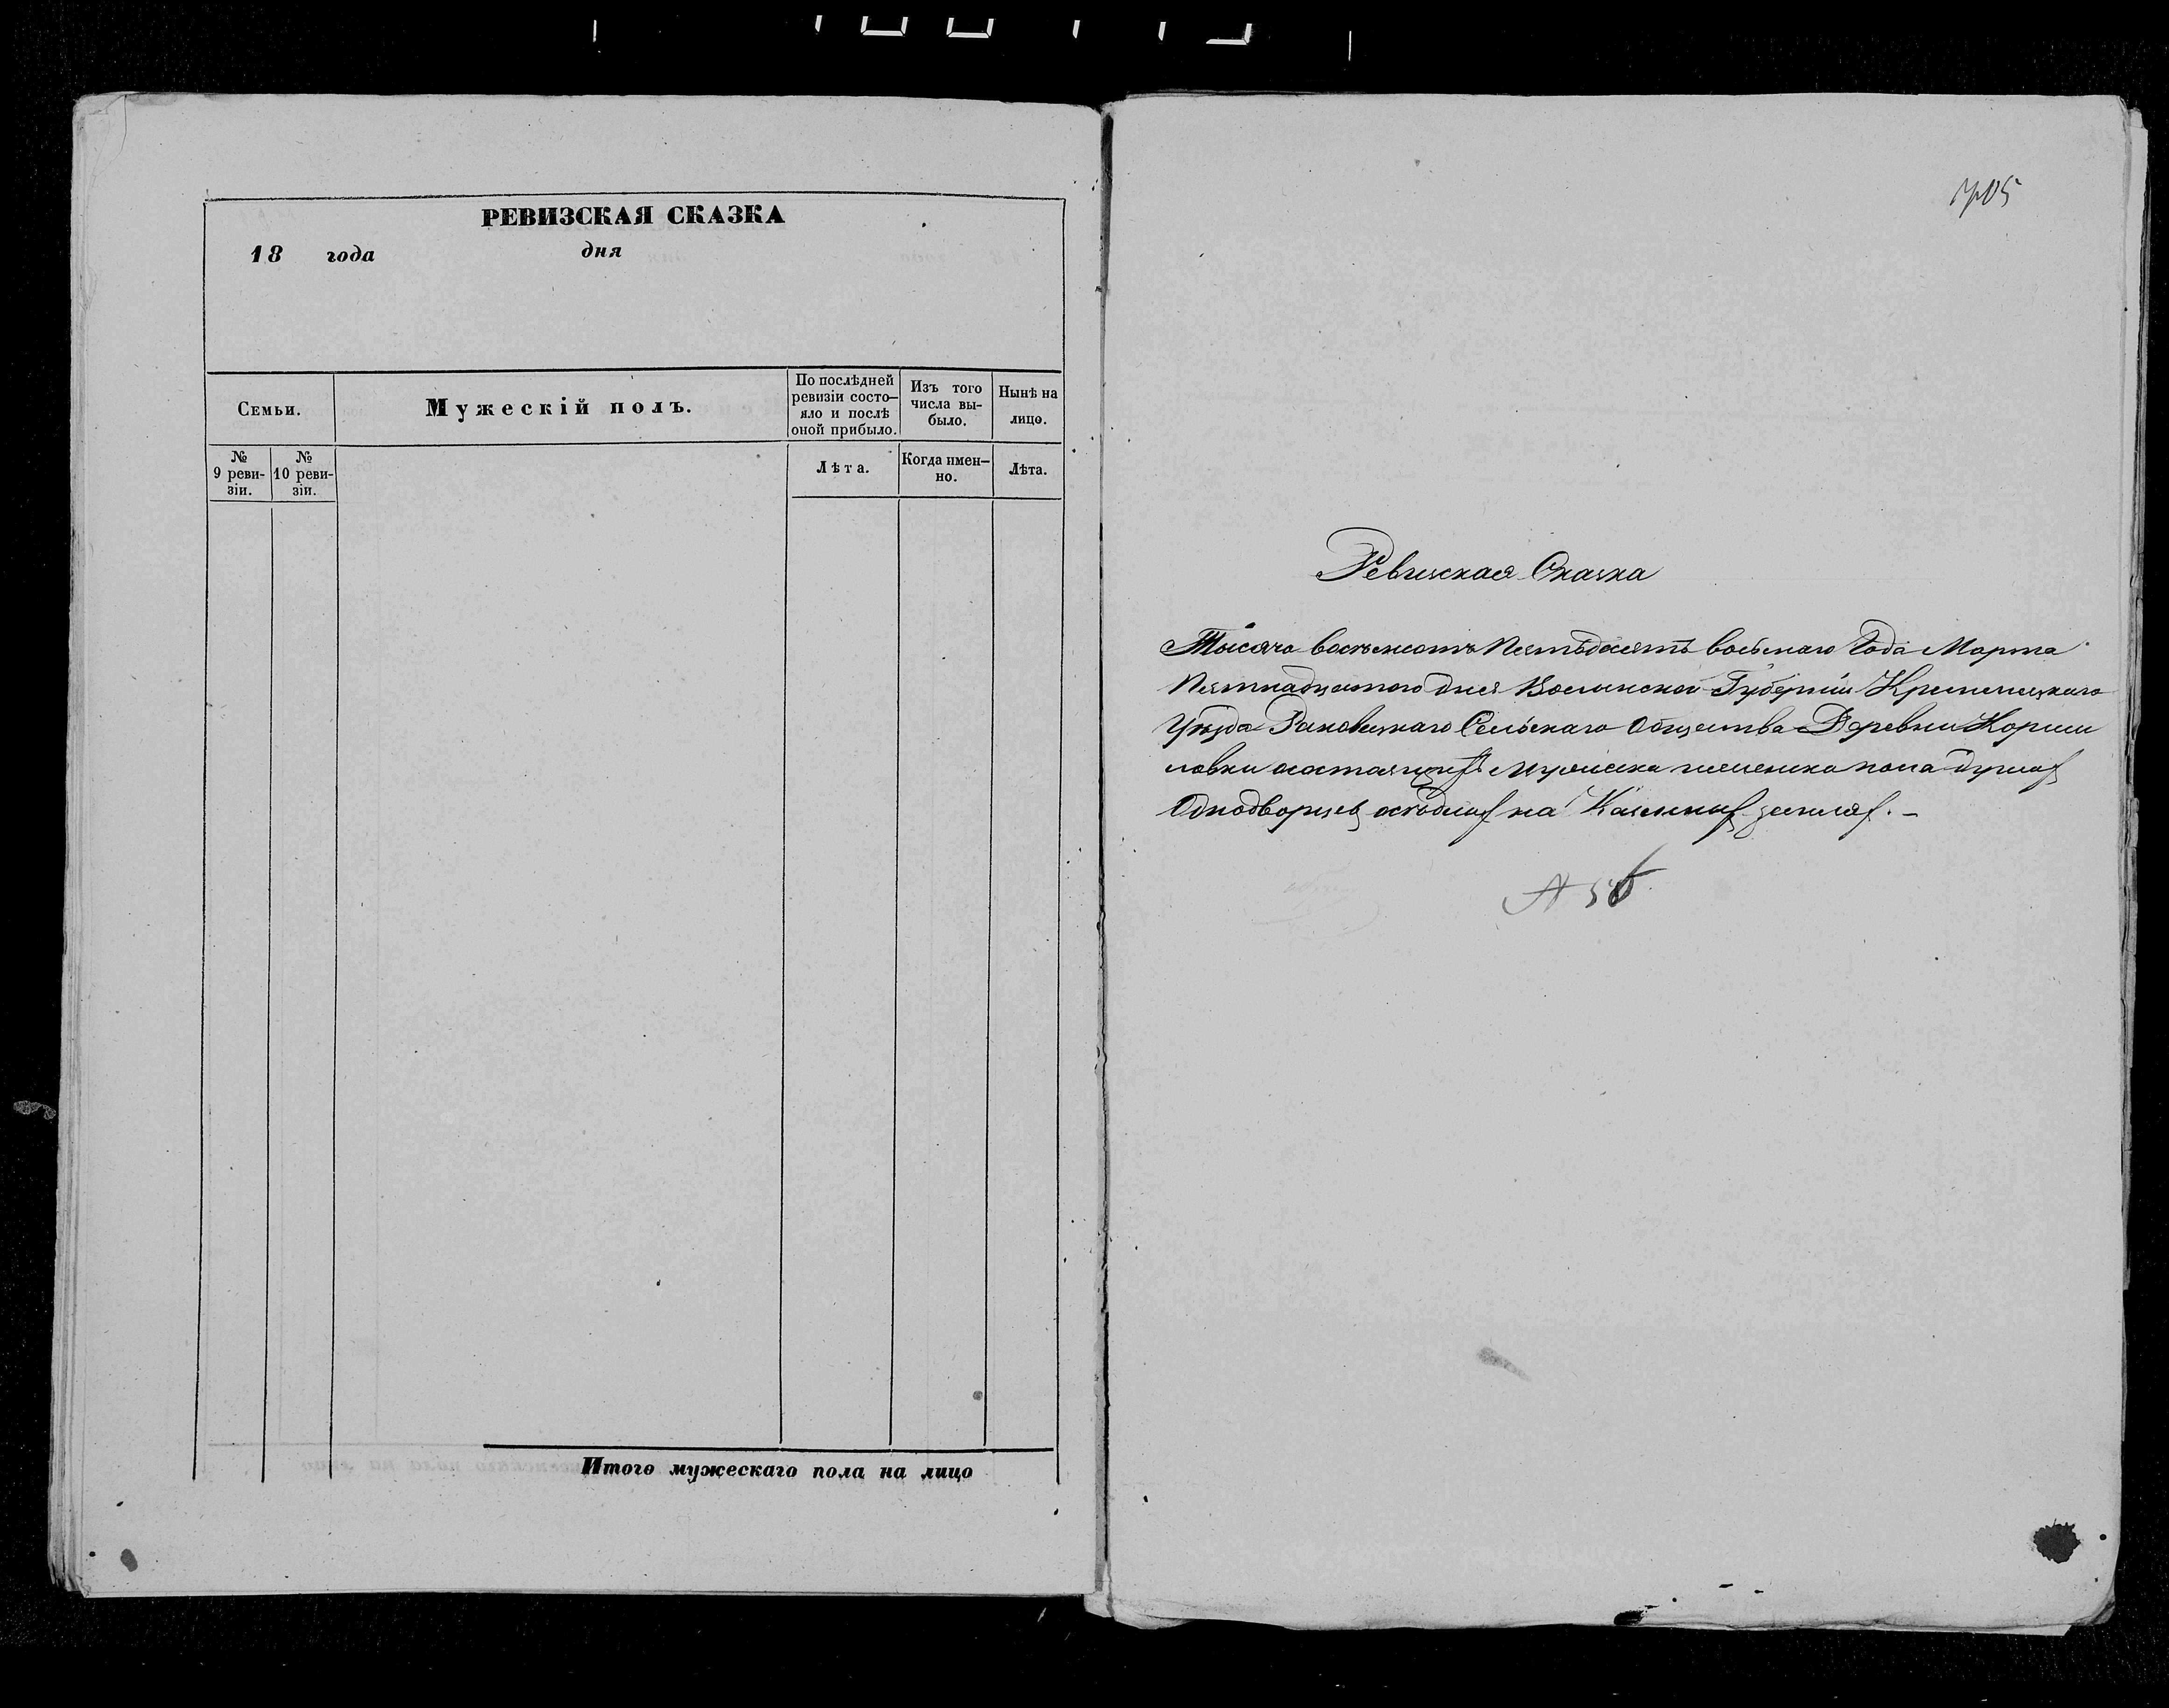 РЕВИЗСКАЯ СКАЗКА
18 года дня
Семьи.
Мужескій полъ.
По послѣдней
ревизіи состо-
яло и послѣ
оной прибыло.
Изъ того
числа вы-
было.
Нынѣ на
лицо.
№
9 реви-
зіи.
№
10 реви-
зіи.
Лѣта.
Когда имен-
но.
Лѣта.
Итого мужескаго пола на лицо
Ревизская Сказка
Тысяча восемьсотъ Пятьдесятъ восьмаго Года Марта
Пятнадцатого дня Волынской Губерніи Кременецкаго
Уѣзда Раковецкаго Сельскаго Общества Деревни Кориш
ловки состоящихъ Мужеска женска пола душах
Однодворцев осѣдлых на Казенных землях. –